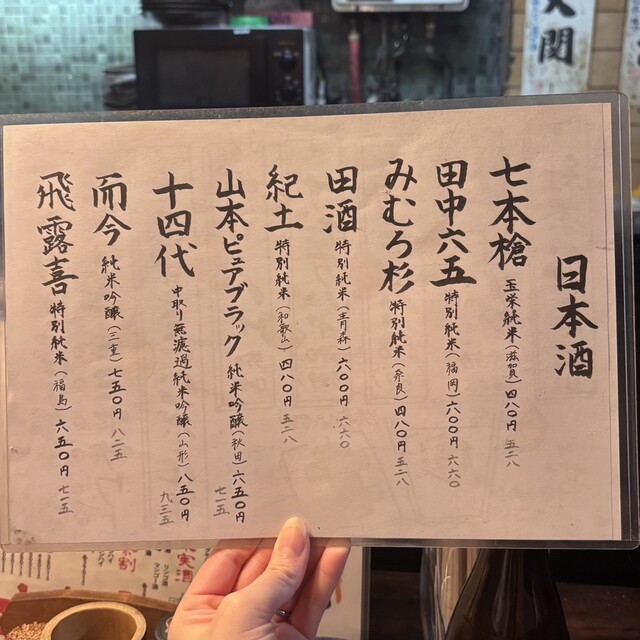 日本酒
七本槍 玉栄純米(滋賀)四八〇円 五二八
田中六五 特別純米(福岡)六〇〇円 六六〇
みむろ杉 特別純米(奈良)四八〇円 五二八
田酒 特別純米(青森)六〇〇円 六六〇
紀土 特別純米(和歌山)四八〇円 五二八
山本ピュアブラック 純米吟醸(秋田)六五〇円 七一五
十四代 中取り無濾過純米吟醸(山形)八五〇円 九三五
而今 純米吟醸(三重)七五〇円 八二五
飛露喜 特別純米(福島)六五〇円 七一五
関